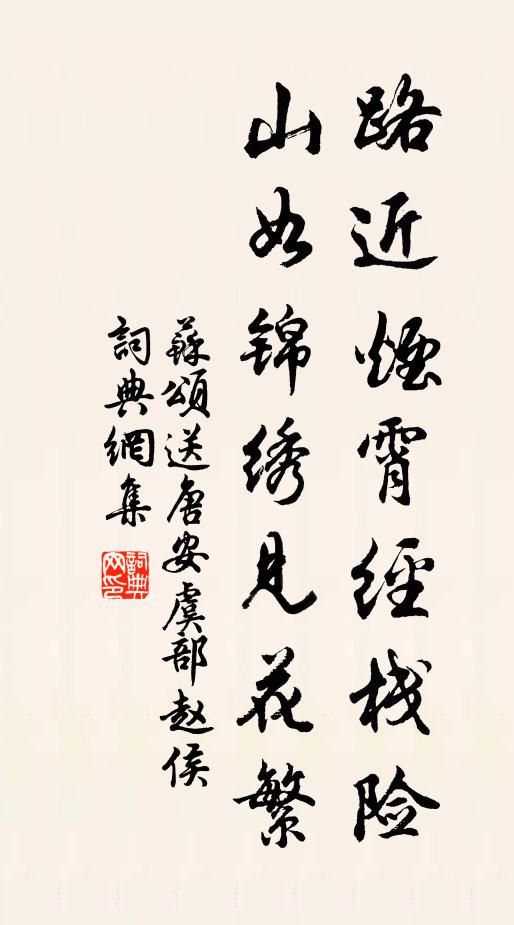 路近煙霄經栈险
山如锦绣見花繁
蘇頌送唐安虞部赵侯
詞典網集
詞典网印